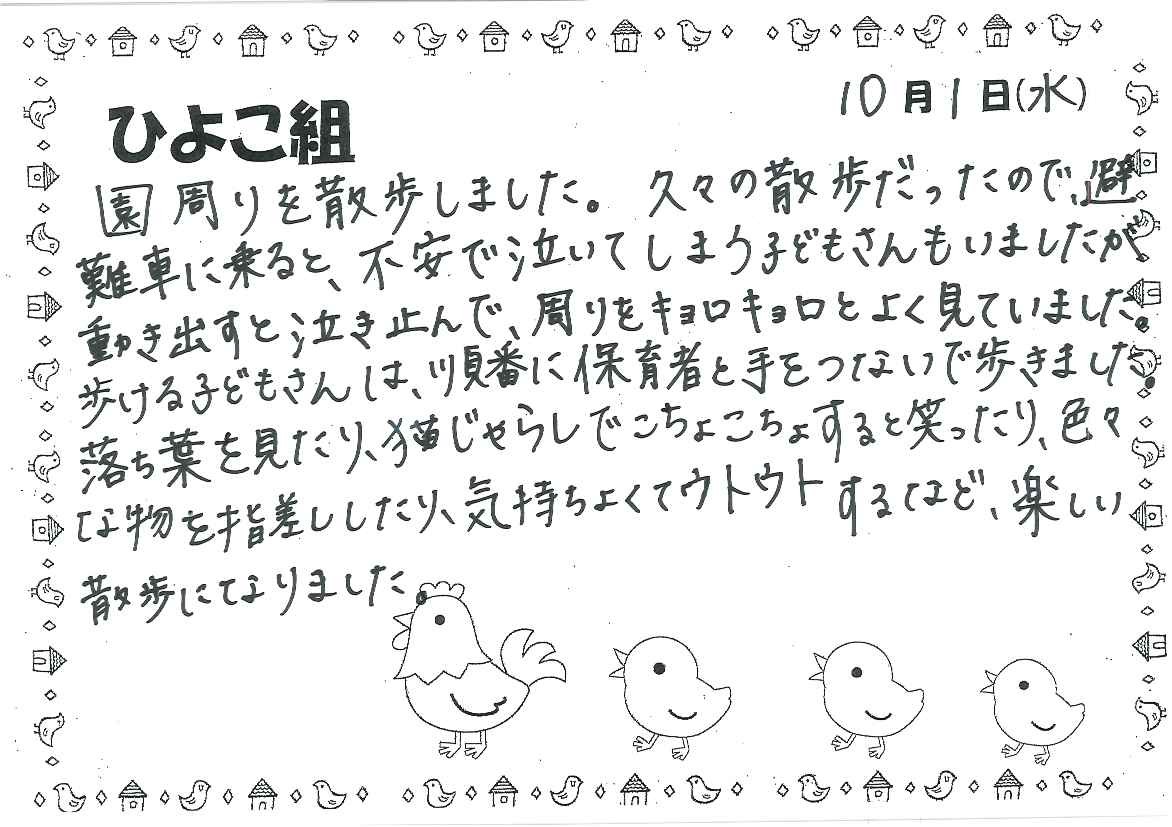 10月1日(水)
ひよこ組
園周りを散歩しました。久々の散歩だったので、避
難車に乗ると、不安で泣いてしまう子どもさんもいましたが、
動き出すと泣き止んで、周りをキョロキョロとよく見ていました。
歩ける子どもさんは、順番に保育者と手をつないで歩きました。
落ち葉を見たり、猫じゃらしでこちょこちょすると笑ったり、色々
な物を指差ししたり、気持ちよくてウトウトするなど、楽しい
散歩になりました。